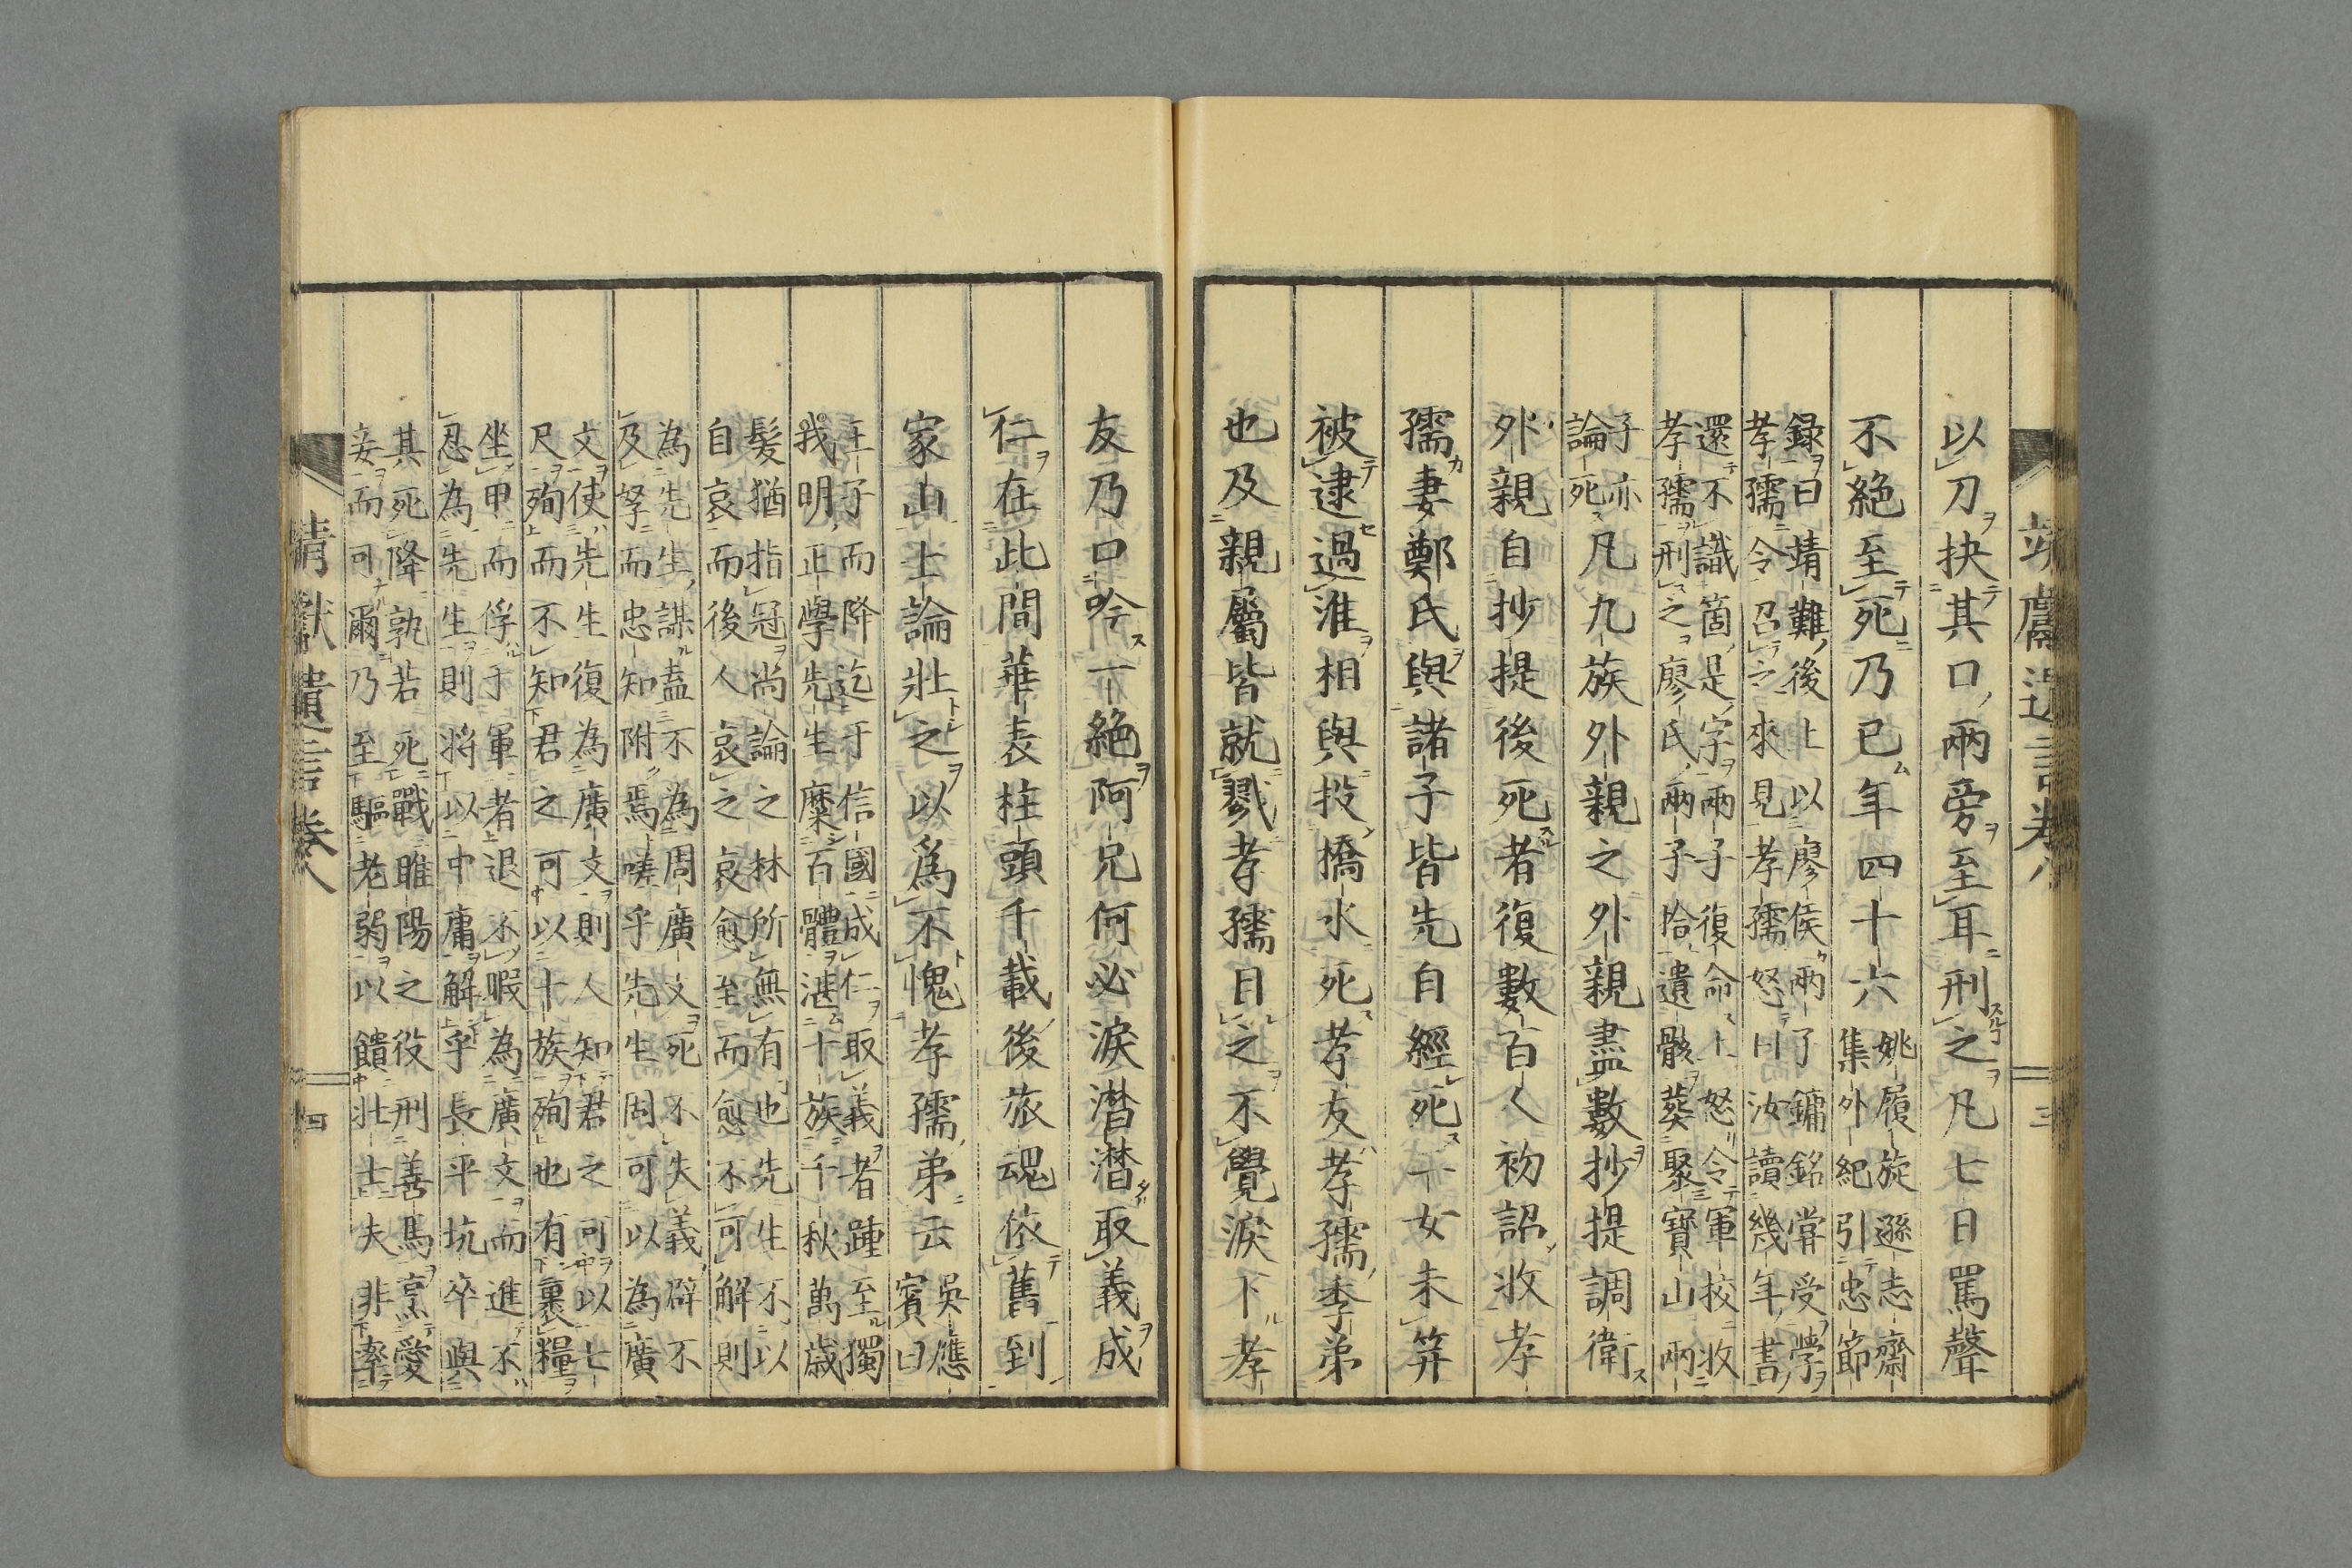 靖獻遺言卷八 三
以刀抉其口兩旁至耳刑之凡七日罵聲
不絶至死乃已年四十六
姚履旋遜志齋
集外紀引忠節
錄曰靖難後上以廖侯兩子鏞銘甞受學
孝孺令召之來見孝孺怒曰汝讀幾年書
還不識箇是字兩子復命上怒令軍校收
孝孺刑之廖氏兩子拾遺骸葬聚寶山兩
子亦
論死
凡九族外親之外親盡數抄提調衛
外親自抄提後死者復數百人初詔收孝
孺妻鄭氏與諸子皆先自經死二女未笄
被逮過淮相與投橋水死孝友孝孺季弟
也及親屬皆就戮孝孺目之不覺淚下孝
友乃口吟一絶阿兄何必淚潜潜取義成
仁在此間華表柱頭千載後旅魂依舊到
家山士論壯之以爲不愧孝孺弟云
吳應
賓曰
王子而降迄于信國成仁取義者踵至獨
我明正學先生糜百體湛十族千秋萬歳
髪猶指冠尚論之林所無有也先生不以
自哀而後人哀之哀愈至而愈不可解則
為先生謀盍不為周廣文死不失義辟不
及孥而忠知附焉嗟乎先生固可以為廣
文使先生復為廣文則人知君之可以七
尺殉而不知君之可以十族殉也有裹糧
坐甲而俘于軍者退不暇為廣文而進不
忍為先生則将以中庸解乎長平坑卒與
其死降孰若死戰睢陽之役刑善馬烹愛
妾而可爾乃至驅老弱以饋壯士夫非率
靖獻遺言卷八 四